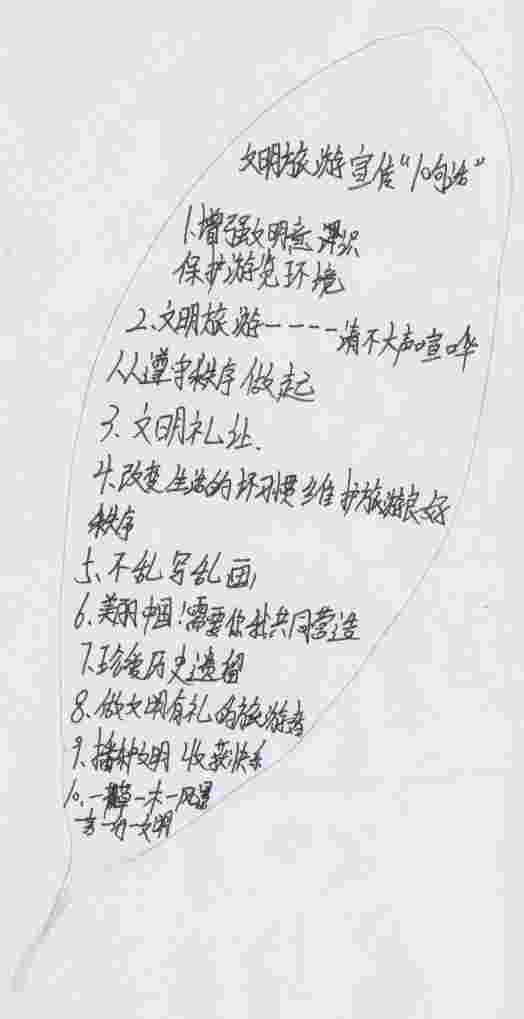 文明旅游宣传“10句话”
1.增强文明意识
保护游览环境
2、文明旅游----请不大声喧哗
人人遵守秩序做起
3、文明礼让.
4.改变生活的坏习惯维护旅游良好
秩序
5、不乱写乱画
6、美丽中国!需要你我共同营造
7.珍爱历史遗留
8、做文明有礼的旅游者
9、播种文明 收获快乐
10、一草一木一风景
一言一行一文明